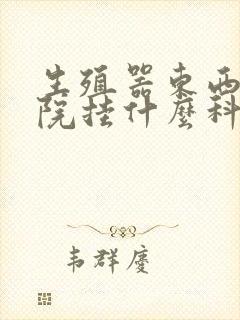 生殖器东西
院挂什麼科
韦群庆